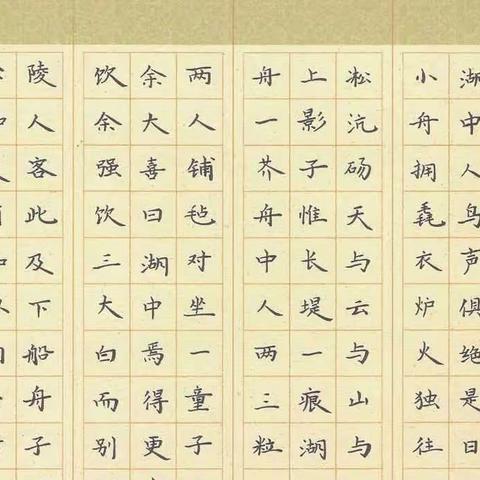 湖中人鸟声俱绝是日
小舟拥毳衣炉火独往
凇沆砀天与云与山与
上影子惟长堤一痕湖
舟一芥舟中人两三粒
两人铺毡对坐一童子
余大喜曰湖中焉得更
饮余强饮三大白而别
陵人客此及下船舟子